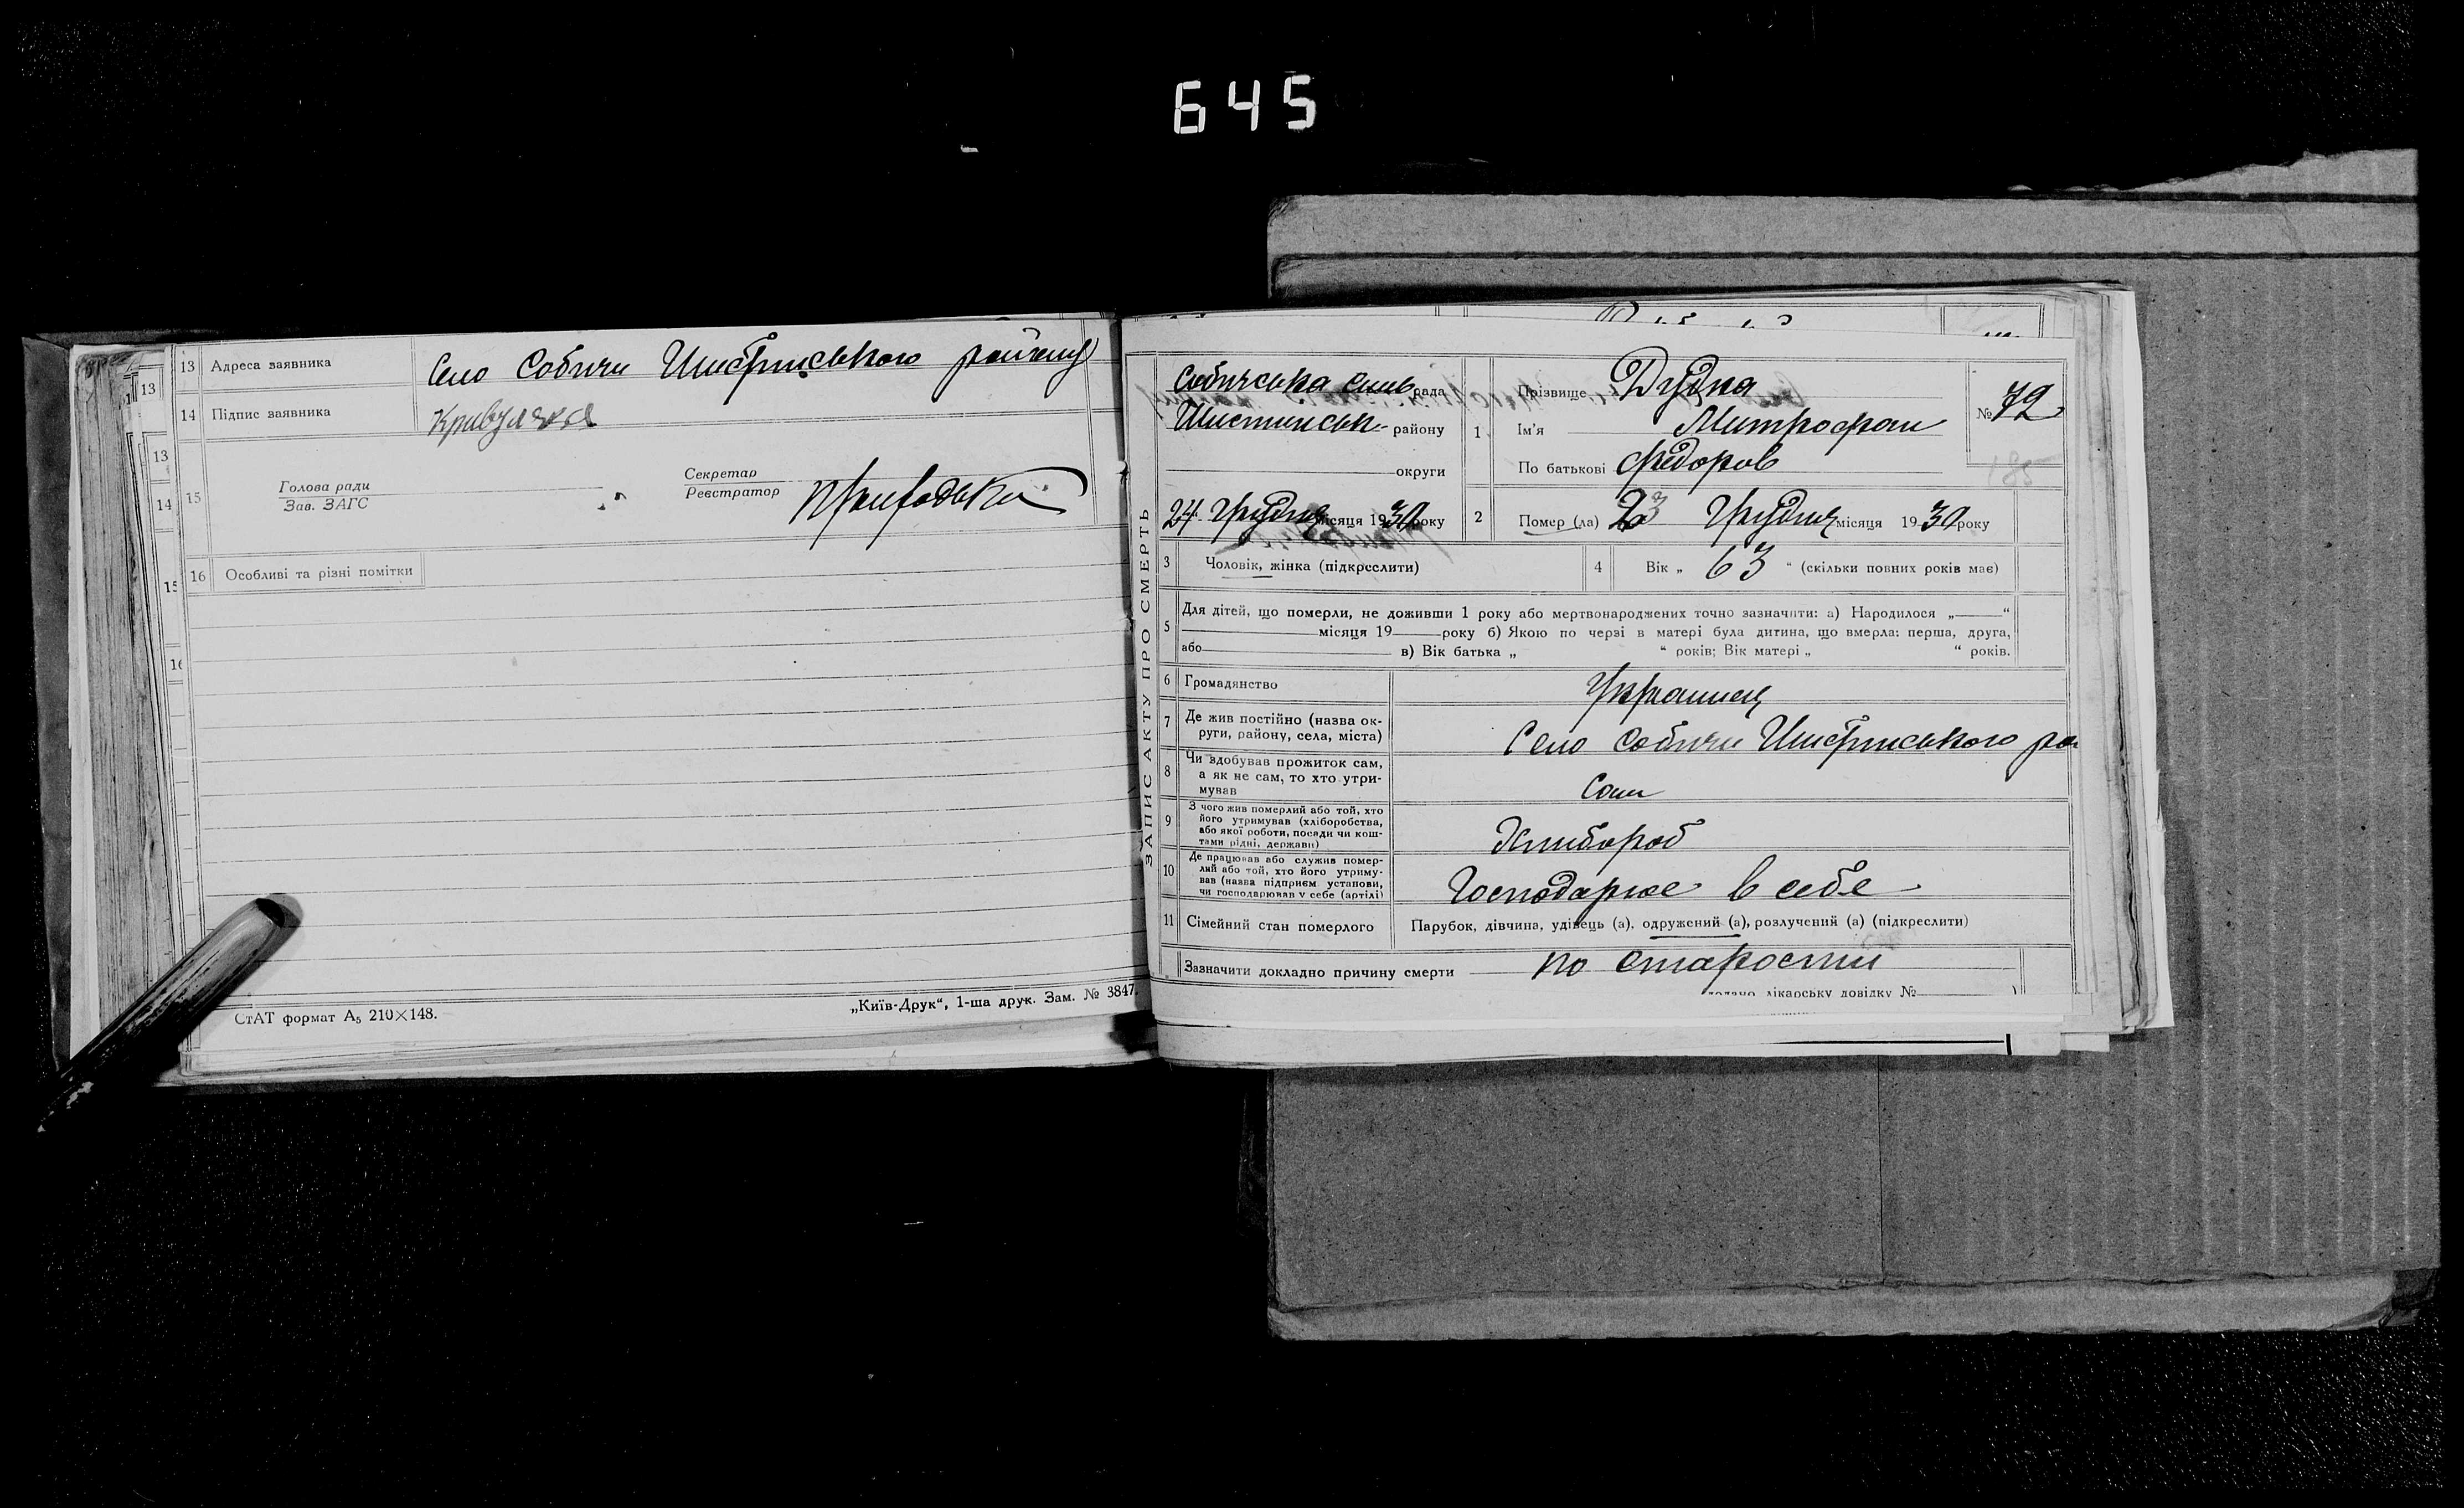 645
13 Адреса заявника Село Собичи Шистинського району
14 Підпис заявника
15 Голова ради
Зав. ЗАГС
Секретар
Реєстратор
16 Особливі та різні помітки
СтАТ формат А5 210×148.
„Київ-Друк“, 1-ша друк. Зам. № 3847.
13
13
14
ЗАПИС АКТУ ПРО СМЕРТЬ
Собичська сіль рада
Шистинськ району
округи
24 Грудня місяця 1930 року
1 Прізвище Дудка
Ім'я Митрофан
По батькові Федоров
№ 72
185
2 Помер (ла) 23 Грудня місяця 1930 року
3 Чоловік, жінка (підкреслити)
4 Вік „ 63 “ (скільки повних років має)
5 Для дітей, що померли, не доживши 1 року або мертвонароджених точно зазначити: а) Народилося „ “
місяця 19 року б) Якою по черзі в матері була дитина, що вмерла: перша, друга,
або в) Вік батька „ “ років; Вік матері „ “ років.
6 Громадянство Українец
7 Де жив постійно (назва округи, району, села, міста) Село Собичи Шистинського ра
8 Чи здобував прожиток сам,
а як не сам, то хто утримував Сам
9 З чого жив померлий або той, хто
його утримував (хліборобства,
або якої роботи, посади чи коштами рідні, держави) Хлибороб
10 Де працював або служив померлий або той, хто його утримував (назва підприєм установи,
чи господарював у себе (артілі) Господарює в себе
11 Сімейний стан померлого Парубок, дівчина, удівець (а), одружений (а), розлучений (а) (підкреслити)
Зазначити докладно причину смерти по старости
лікарську довідку №